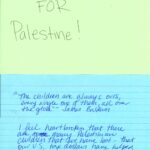 FOR
Palestine!
"The children are always ours,
every single one of them, all over
the globe" - James Baldwin
I feel heartbroken that there
are many Palestinian
children that have lost - that
our U.S. tax dollars have helped